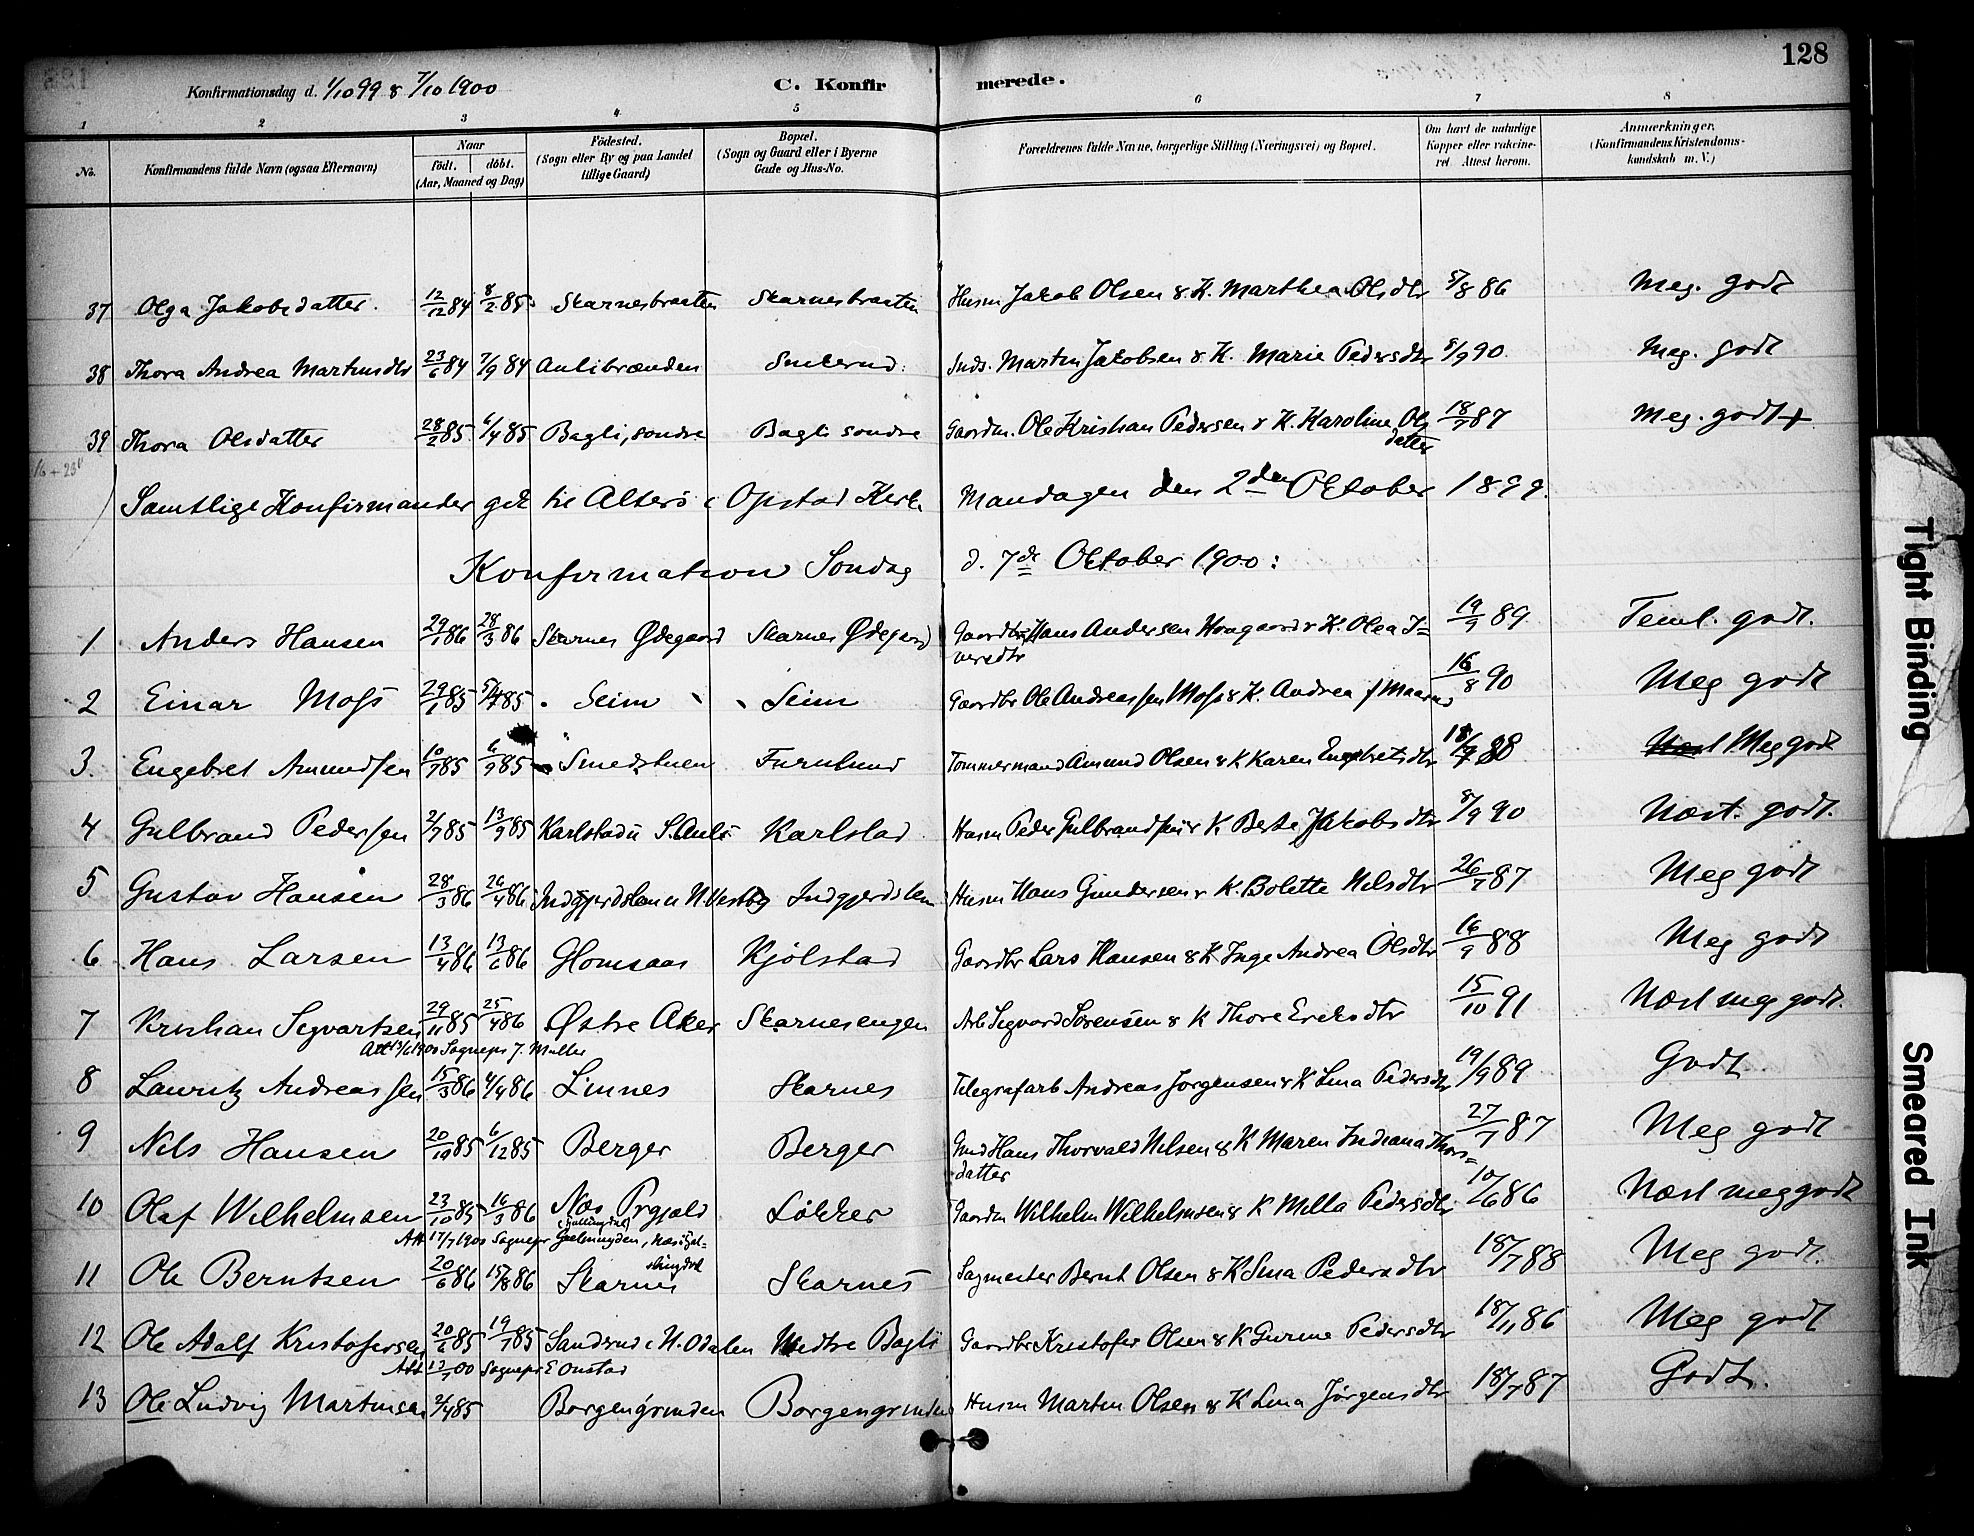 128
Konfirmationsdag d. 1/10 99 & 7/10 1900
C. Konfirmerede.
1 2 3 4 5 6 7 8
No.
Konfirmandens fulde Navn (ogsaa Efternavn)
Naar
födt. döbt.
(Aar, Maaned og Dag)
Födested.
(Sogn eller By og paa Landet
tillige Gaard)
Bopæl.
(Sogn og Gaard eller i Byerne
Gade og Hus-No.
Forældrenes fulde Navne, borgerlige Stilling (Næringsvei) og Bopæl.
Om havt de naturlige
Kopper eller vakcine-
ret. Attest herom.
Anmærkninger.
(Konfirmandens Kristendoms-
kundskab m. V.)
37 Olga Jakobsdatter. 12/12 84 8/2 85 Skarnesbraaten Skarnesbraaten Husm Jakob Olsen & K. Marthea Olsdtr 5/8 86 Meg. godt
38 Thora Andrea Martinsdtr 23/6 84 7/9 84 Aulibrænden Inds. Martin Jakobsen & K. Marie Pedersdtr 5/9 90 Meg. godt
39 Thora Olsdatter 28/2 85 6/4 85 Bagli, söndre Bagli söndre Gaardm. Ole Kristian Pedersen & K. Karoline Ols
datter 18/7 87 Meg. godt +
Samtlige Konfirmander gik til Alters i Opstad Kirke Mandagen den 2den Oktober 1899.
Konfirmation Söndag d. 7de Oktober 1900:
1 Anders Hansen 29/1 86 28/3 86 Skarnes Ødegaard Skarnes Ødegaard Gaardbr Hans Andersen Haugaard & K. Olea I=
versdtr 19/9 89 Teml. godt.
2 Einar Moss 29/1 85 5/4 85 Seim Seim Gaardbr Ole Andreassen Moss & K. Andrea f 16/8 90 Meg godt
3. Engebret Amundsen 10/7 85 6/9 85 Smedstuen Furulund Tömmermand Amund Olsen & K Karen Engebretsdtr 18/7 88 Meg godt
4 Gulbrand Pedersen 2/7 85 13/9 85 Karlstad u S. Auli Karlstad Husm Peder Gulbrandsen & K. Berte Jakobsdtr 8/9 90 Næst. godt.
5 Gustav Hansen 28/3 86 26/4 86 Indgjerdslien u N. Vestby Indgjerdslien Husm Hans Gundersen & K. Bolette Nilsdtr 26/7 87 Meg godt
6 Hans Larsen 13/4 86 13/6 86 Glomsaas Kjölstad Gaardbr Lars Hansen & K Inge Andrea Olsdtr 16/9 88 Meg godt
7 Kristian Segvartsen 29/11 85 25/4 86 Østre Aker Skarnesengen Arb Segvard Sörensen & K Thore Eriksdtr 15/10 91 Næst meg godt.
Att 13/6 1900 Sognepr J. Müller
8 Lauritz Andreassen 15/3 86 4/4 86 Linnes Skarnes Telegrafarb Andreas Jörgensen & K Lina Pedersdtr 19/9 89 Godt
9 Nils Hansen 20/10 85 6/12 85 Berger Berger Hans Thorvald Nilsen & K Maren Indiana Thors=
datter 27/7 87 Meg godt
10 Olaf Wilhelmsen 23/10 85 16/3 86 Næs Prgjæld
(Hallingdal) Lökker Gaardm Wilhelm Wilhelmsen & K Milla Pedersdtr 10/6 86 Næst meg godt
Att 17/7 1900 Sognepr Næs i Hal-
lingdal
11 Ole Berntsen 20/6 86 15/8 86 Skarnes Skarnes Sagmester Bernt Olsen & K Lina Pedersdtr 18/7 88 Meg godt.
12 Ole Adolf Kristofersen 20/6 85 19/7 85 Sandrud i N. Odalen Nedtre Bagli Gaardbr Kristofer Olsen & K Gurine Pedersdtr 18/11 86 Meg godt
Att 00 Sognepr E Onstad
13 Ole Ludvig Martinsen 2/4 85 Borgengrinden Borgengrinden Husm Martin Olsen & K Lina Jörgensdtr 18/7 87 Godt.
Tight Binding
Smeared Ink